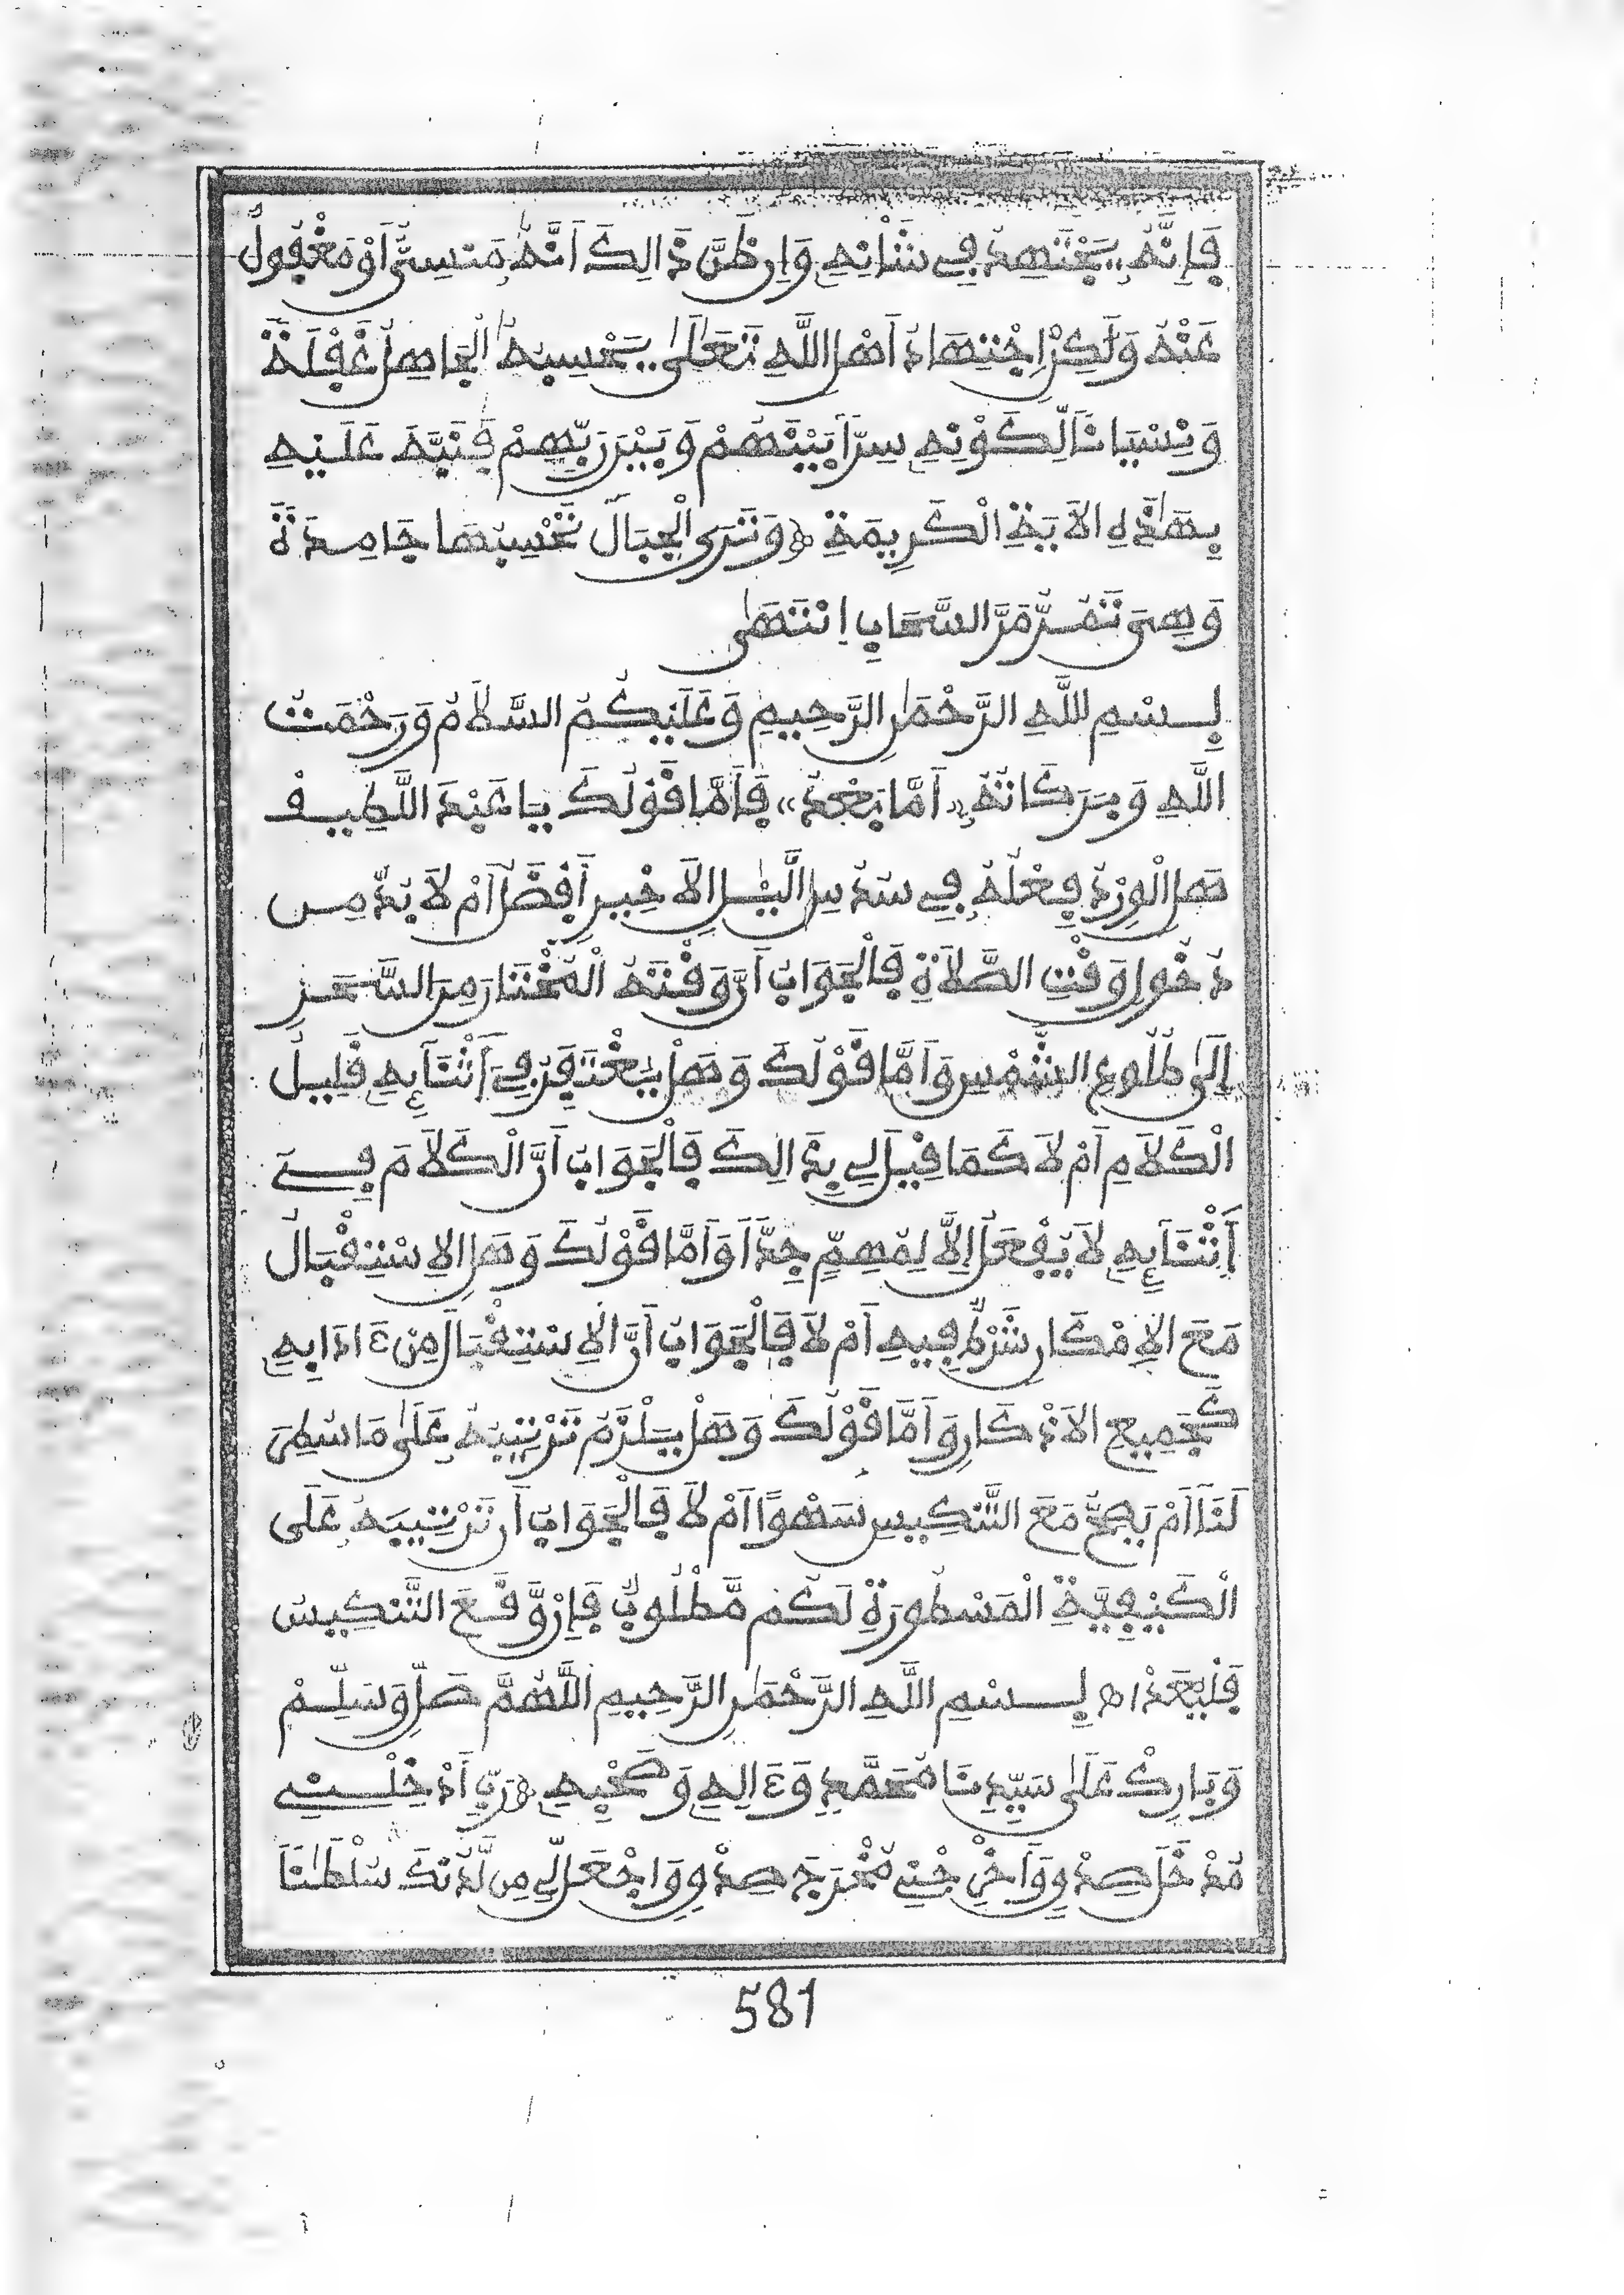 فَإِنَّهُ يَجْتَهِدُ فِي شَأْنِهِ وَإِن ظَنَّ ذَالِكَ أَنَّهُ مَنسِيٌّ أَوْ مَغْفُولٌ
عَنْهُ وَلَكِنْ اِجْتِهَادُ أَهْلِ اللَّهِ تَعَلَىٰ يَحْسِبُهُ الْجَاهِلُ غَفْلَةً
وَنِسْيَانًا لِّكَوْنِهِ سِرًّا بَيْنَهُمْ وَبَيْنَ رَبِّهِمْ فَنَبَّهَ عَلَيْهِ
بِهَٰذِهِ الْآيَةِ الْكَرِيمَةِ وَتَرَى الْجِبَالَ تَحْسِبُهَا جَامِدَةً
وَهِيَ تَمُرُّ مَرَّ السَّحَابِ اِنْتَهَىٰ
بِسْمِ اللَّهِ الرَّحْمَٰنِ الرَّحِيمِ وَعَلَيْكُمُ السَّلَامُ وَرَحْمَتُ
اللَّهِ وَبَرَكَاتُهُ «أَمَّا بَعْدُ» فَأَمَّا قَوْلُكَ يَا عَبْدَ اللَّطِيفْ
هَلِ الْوِرْدُ فِعْلُهُ فِي سُدُسِ الَّيْلِ الْأَخِيرِ أَفْضَلُ أَمْ لَا بُدَّ مِن
دُخُولِ وَقْتِ الصَّلَاةِ فَالْجَوَابُ أَنَّ وَقْتَهُ الْمُخْتَارَ مِنَ السَّحَرِ
إِلَىٰ طُلُوعِ الشَّمْسِ وَأَمَّا قَوْلُكَ وَهَلْ يُغْتَفَرُ فِي أَثْنَآئِهِ قَلِيلُ
الْكَلَامِ أَمْ لَا كَمَا قِيلَ لِي بِذَالِكَ فَالْجَوَابُ أَنَّ الْكَلَامَ فِي
أَثْنَآئِهِ لَا يُفْعَلُ إِلَّا لِمُهِمٍّ جِدًّا وَأَمَّا قَوْلُكَ وَهَلِ الْإِسْتِقْبَالُ
مَعَ الْإِمْكَانِ شَرْطٌ فِيهِ أَمْ لَا فَالْجَوَابُ أَنَّ الْإِسْتِقْبَالَ مِنْ ءَادَابِهِ
كَجَمِيعِ الْأَذْكَارِ وَأَمَّا قَوْلُكَ وَهَلْ يَلْزَمُ تَرْتِيبُهُ عَلَىٰ مَا سُطِرَ
لَنَا أَمْ يَصِحُّ مَعَ التَّنْكِيسِ سَهْوًا أَمْ لَا فَالْجَوَابُ أَن تَرْتِيبَهُ عَلَى
الْكَيْفِيَّةِ الْمَسْطُورَةِ لَكُم مَّطْلُوبٌ فَإِنْ وَّقَعَ التَّنْكِيسُ
فَلْيُعَدْ اهـ بِسْمِ اللَّهِ الرَّحْمَٰنِ الرَّحِيمِ اللَّهُمَّ صَلِّ وَسَلِّمْ
وَبَارِكْ عَلَىٰ سَيِّدِنَا مُحَمَّدٍ وَءَالِهِ وَصَحْبِهِ رَبِّ أَدْخِلْنِي
مُدْخَلَ صِدْقٍ وَأَخْرِجْنِي مُخْرَجَ صِدْقٍ وَاجْعَل لِّي مِن لَّدُنكَ سُلْطَٰنًا
581